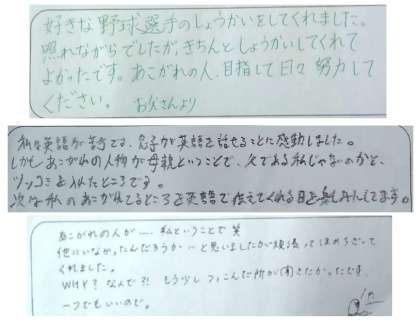 好きな野球選手のしょうかいをしてくれました。
照れながらでしたが、きちんとしょうかいしてくれて
よかったです。あこがれの人、目指して日々努力して
ください。 お父さんより
私は英語が苦手です、息子が英語を話せることに感動しました。
しかしあこがれの人物が母親ということで、父である私じゃないのかと、
ツッコミを入れたところです。
次は私のあこがれてるところを英語で伝えてくれる日を楽しみにしてます。
あこがれの人が…私ということで 笑
他にいなかったんだろうか…と思いましたが頑張ってほめちぎって
くれました。
WHY? なんで?! もう少しつっこんだ所が聞きたかったです
一つでもいいので。